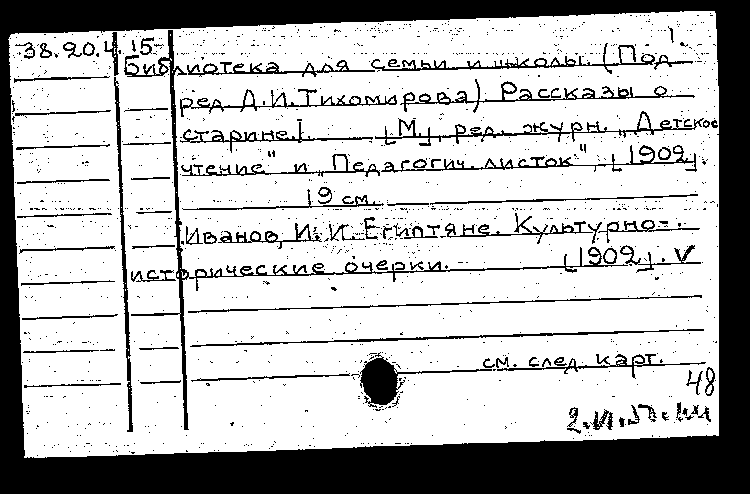 38.20.4.15
1.
Библиотека для семьи и школы. (Под
ред Д.И.Тихомирова). Рассказы о
старине.I. [М.], ред. журн. „Детское
чтение" и „Педагогич. листок", [1902].
19 см.
Иванов, И.И. Египтяне. Культурно-
исторические очерки. [1902]. V
см. след. карт.
48